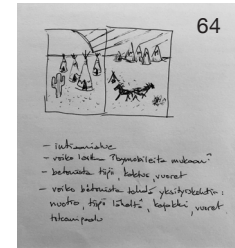 64
- intiaanialue
- voiko laittaa Playmobileita mukaan?
- betonista tiipii, kaktus, vuoret
- voiko betonista tehdä yksityiskohtia:
nuotio, tiipii läheltä, kaktus, vuoret